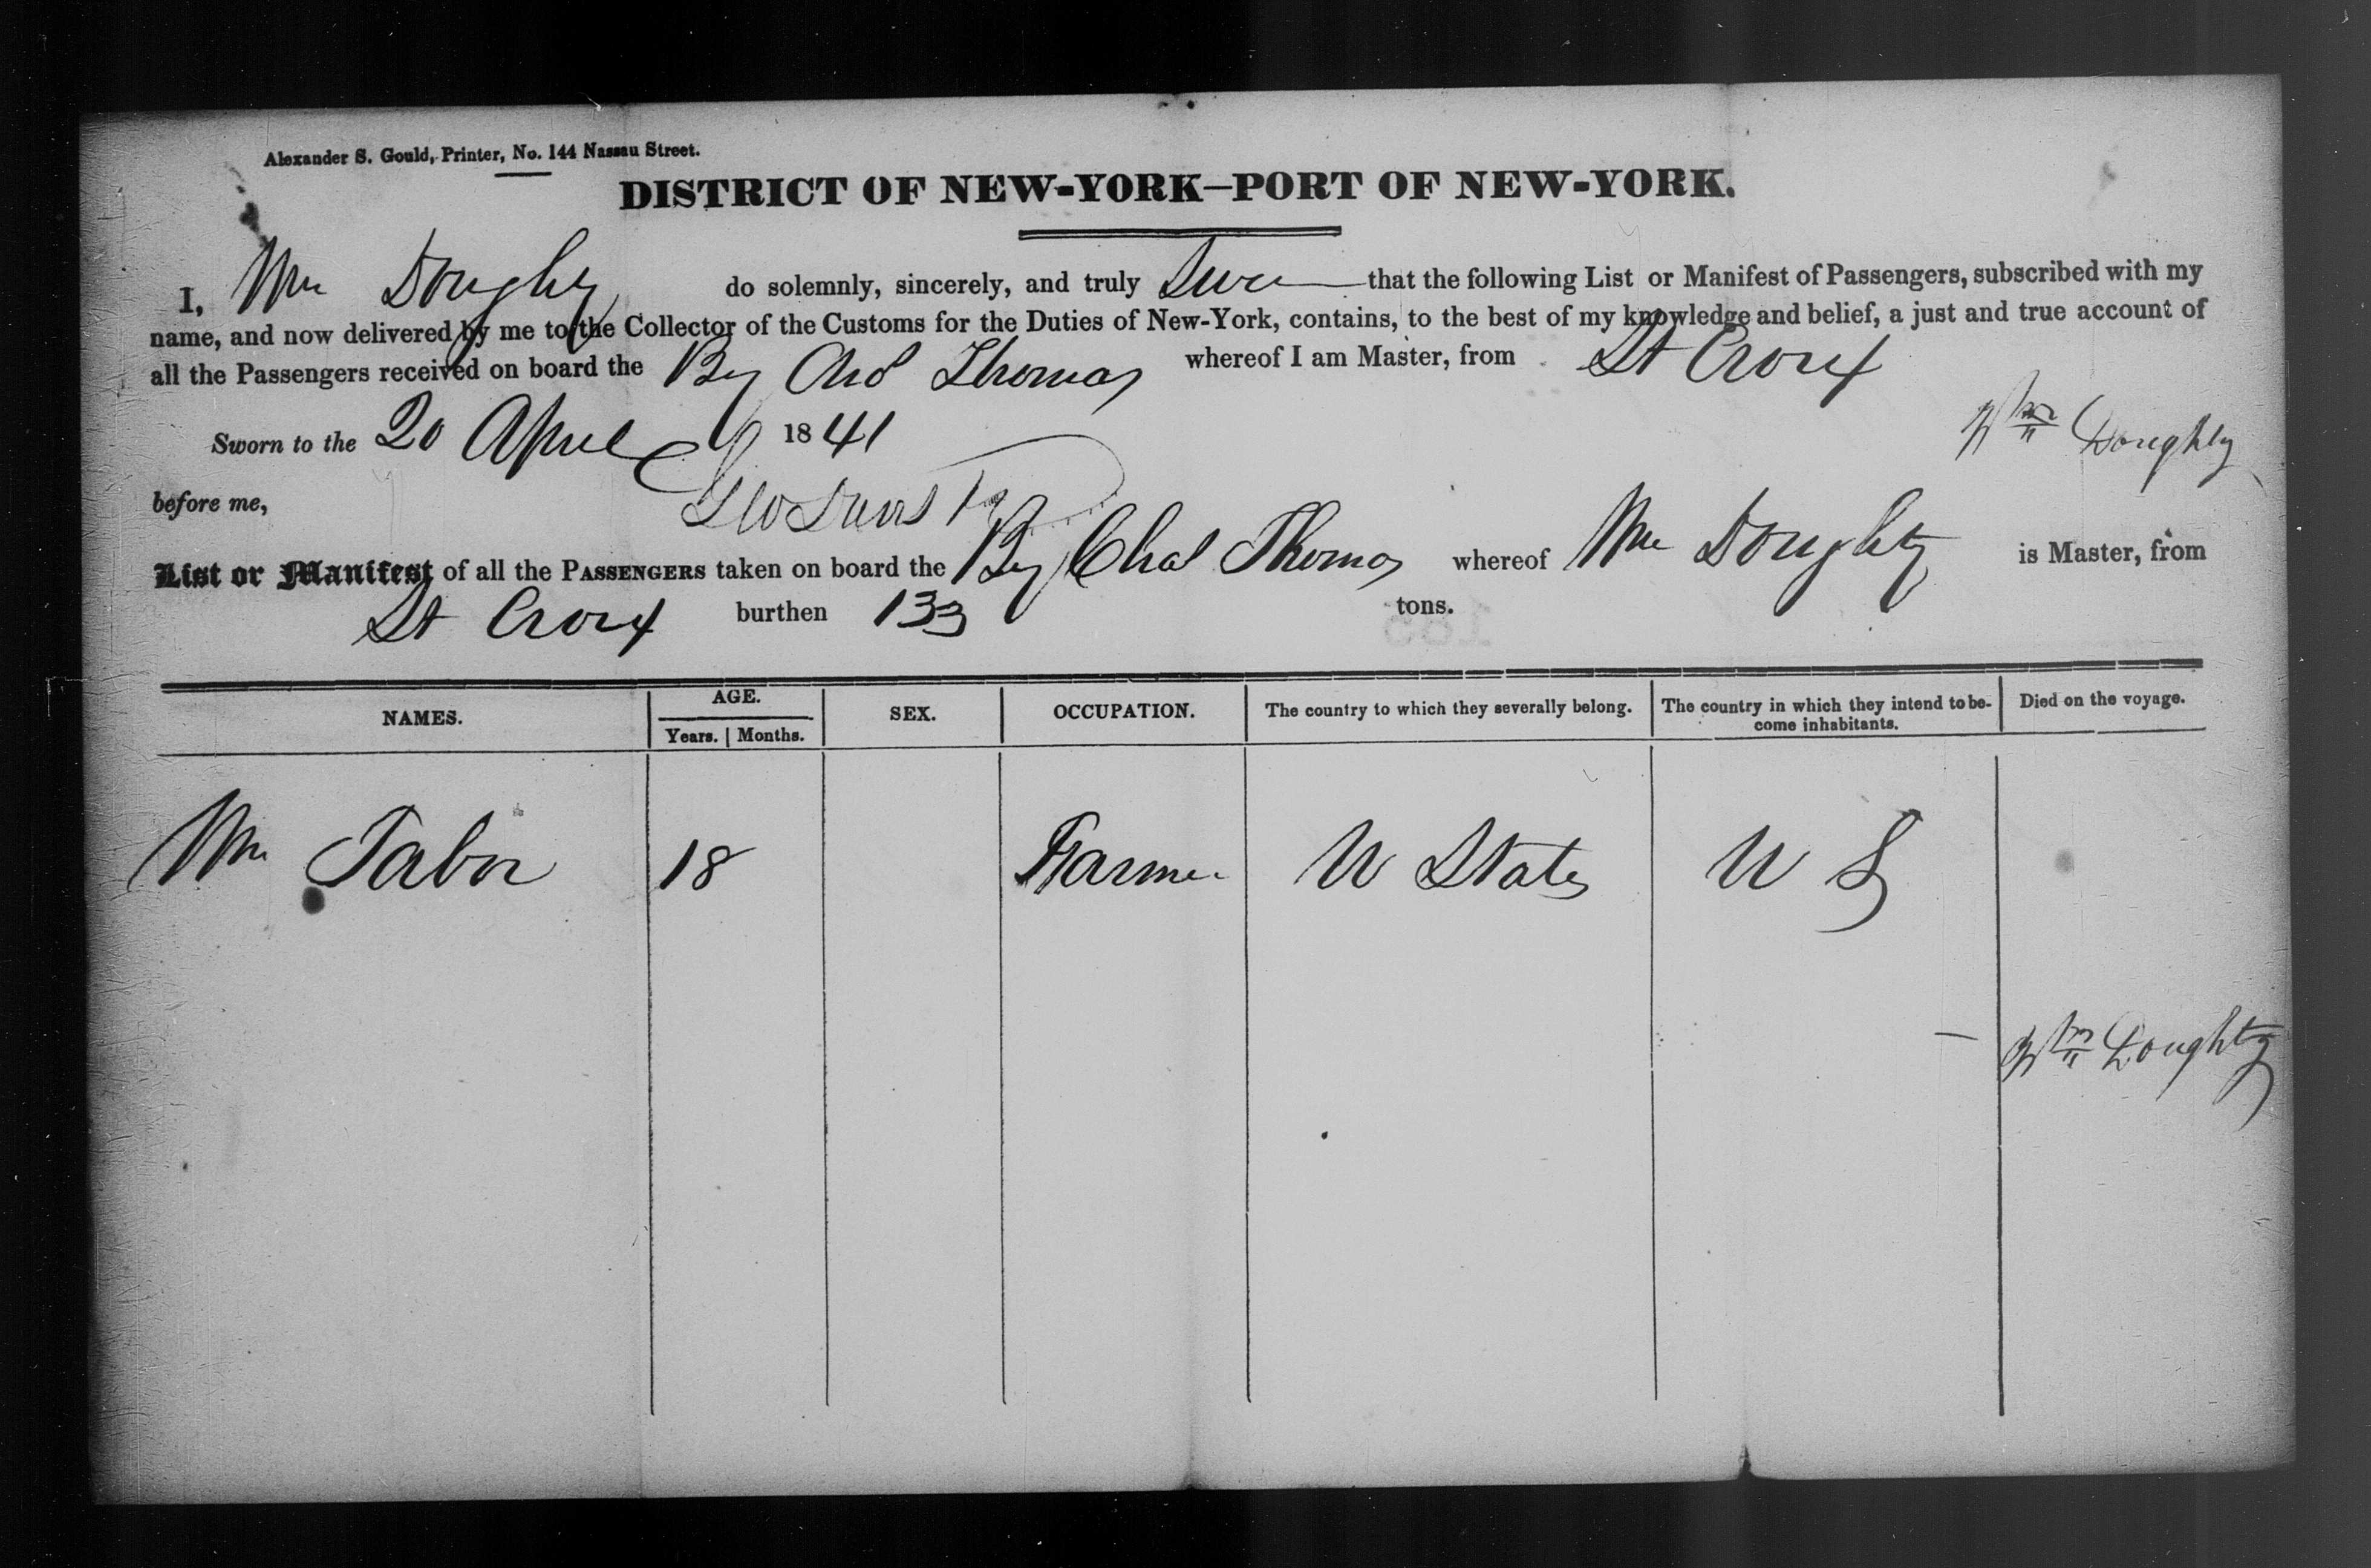 Alexander S. Gould, Printer, No. 144 Nassau Street.
DISTRICT OF NEW-YORK—PORT OF NEW-YORK.
I, Wm Doughty do solemnly, sincerely, and truly that the following List or Manifest of Passengers, subscribed with my
name, and now delivered by me to the Collector of the Customs for the Duties of New-York, contains, to the best of my knowledge and belief, a just and true account of
all the Passengers received on board the Chas Thomas whereof I am Master, from St Croix
Wm Doughty
Sworn to the 20 April 1841
before me,
List or Manifest of all the PASSENGERS taken on board the Chas Thomas whereof Wm Doughty is Master, from
St Croix burthen 133 tons.
NAMES. AGE. Years. | Months. SEX. OCCUPATION. The country to which they severally belong. The country in which they intend to be-come inhabitants. Died on the voyage.
Wm Tabor 18 Farmer U States U S
Wm Doughty